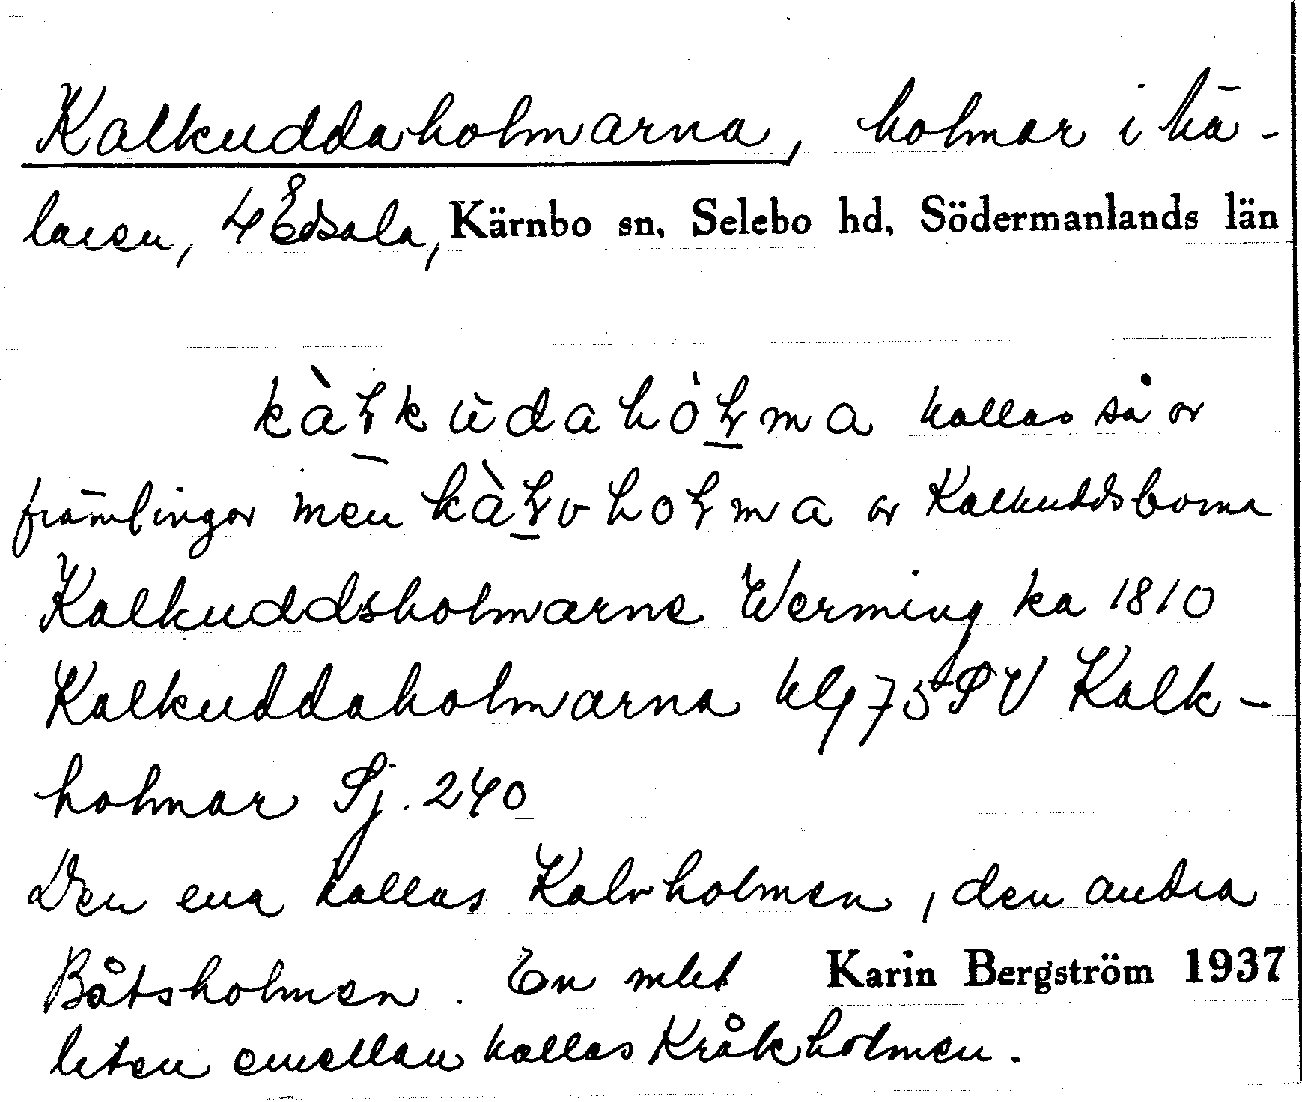 Kalkuddaholmarna, holmar i Mä-
laren, 4 Edsala, Kärnbo sn, Selebo hd, Södermanlands län
kallas så av
främlingar men av Kalkuddsborna
Kalkuddsholmarne Werming ka 1810
Kalkuddaholmarna 75 SV Kalk-
holmar Sj. 240
Den ena kallas Kalvholmen, den andra
Båtsholmen. En mkt Karin Bergström 1937
liten emellan kallas Kråkholmen.